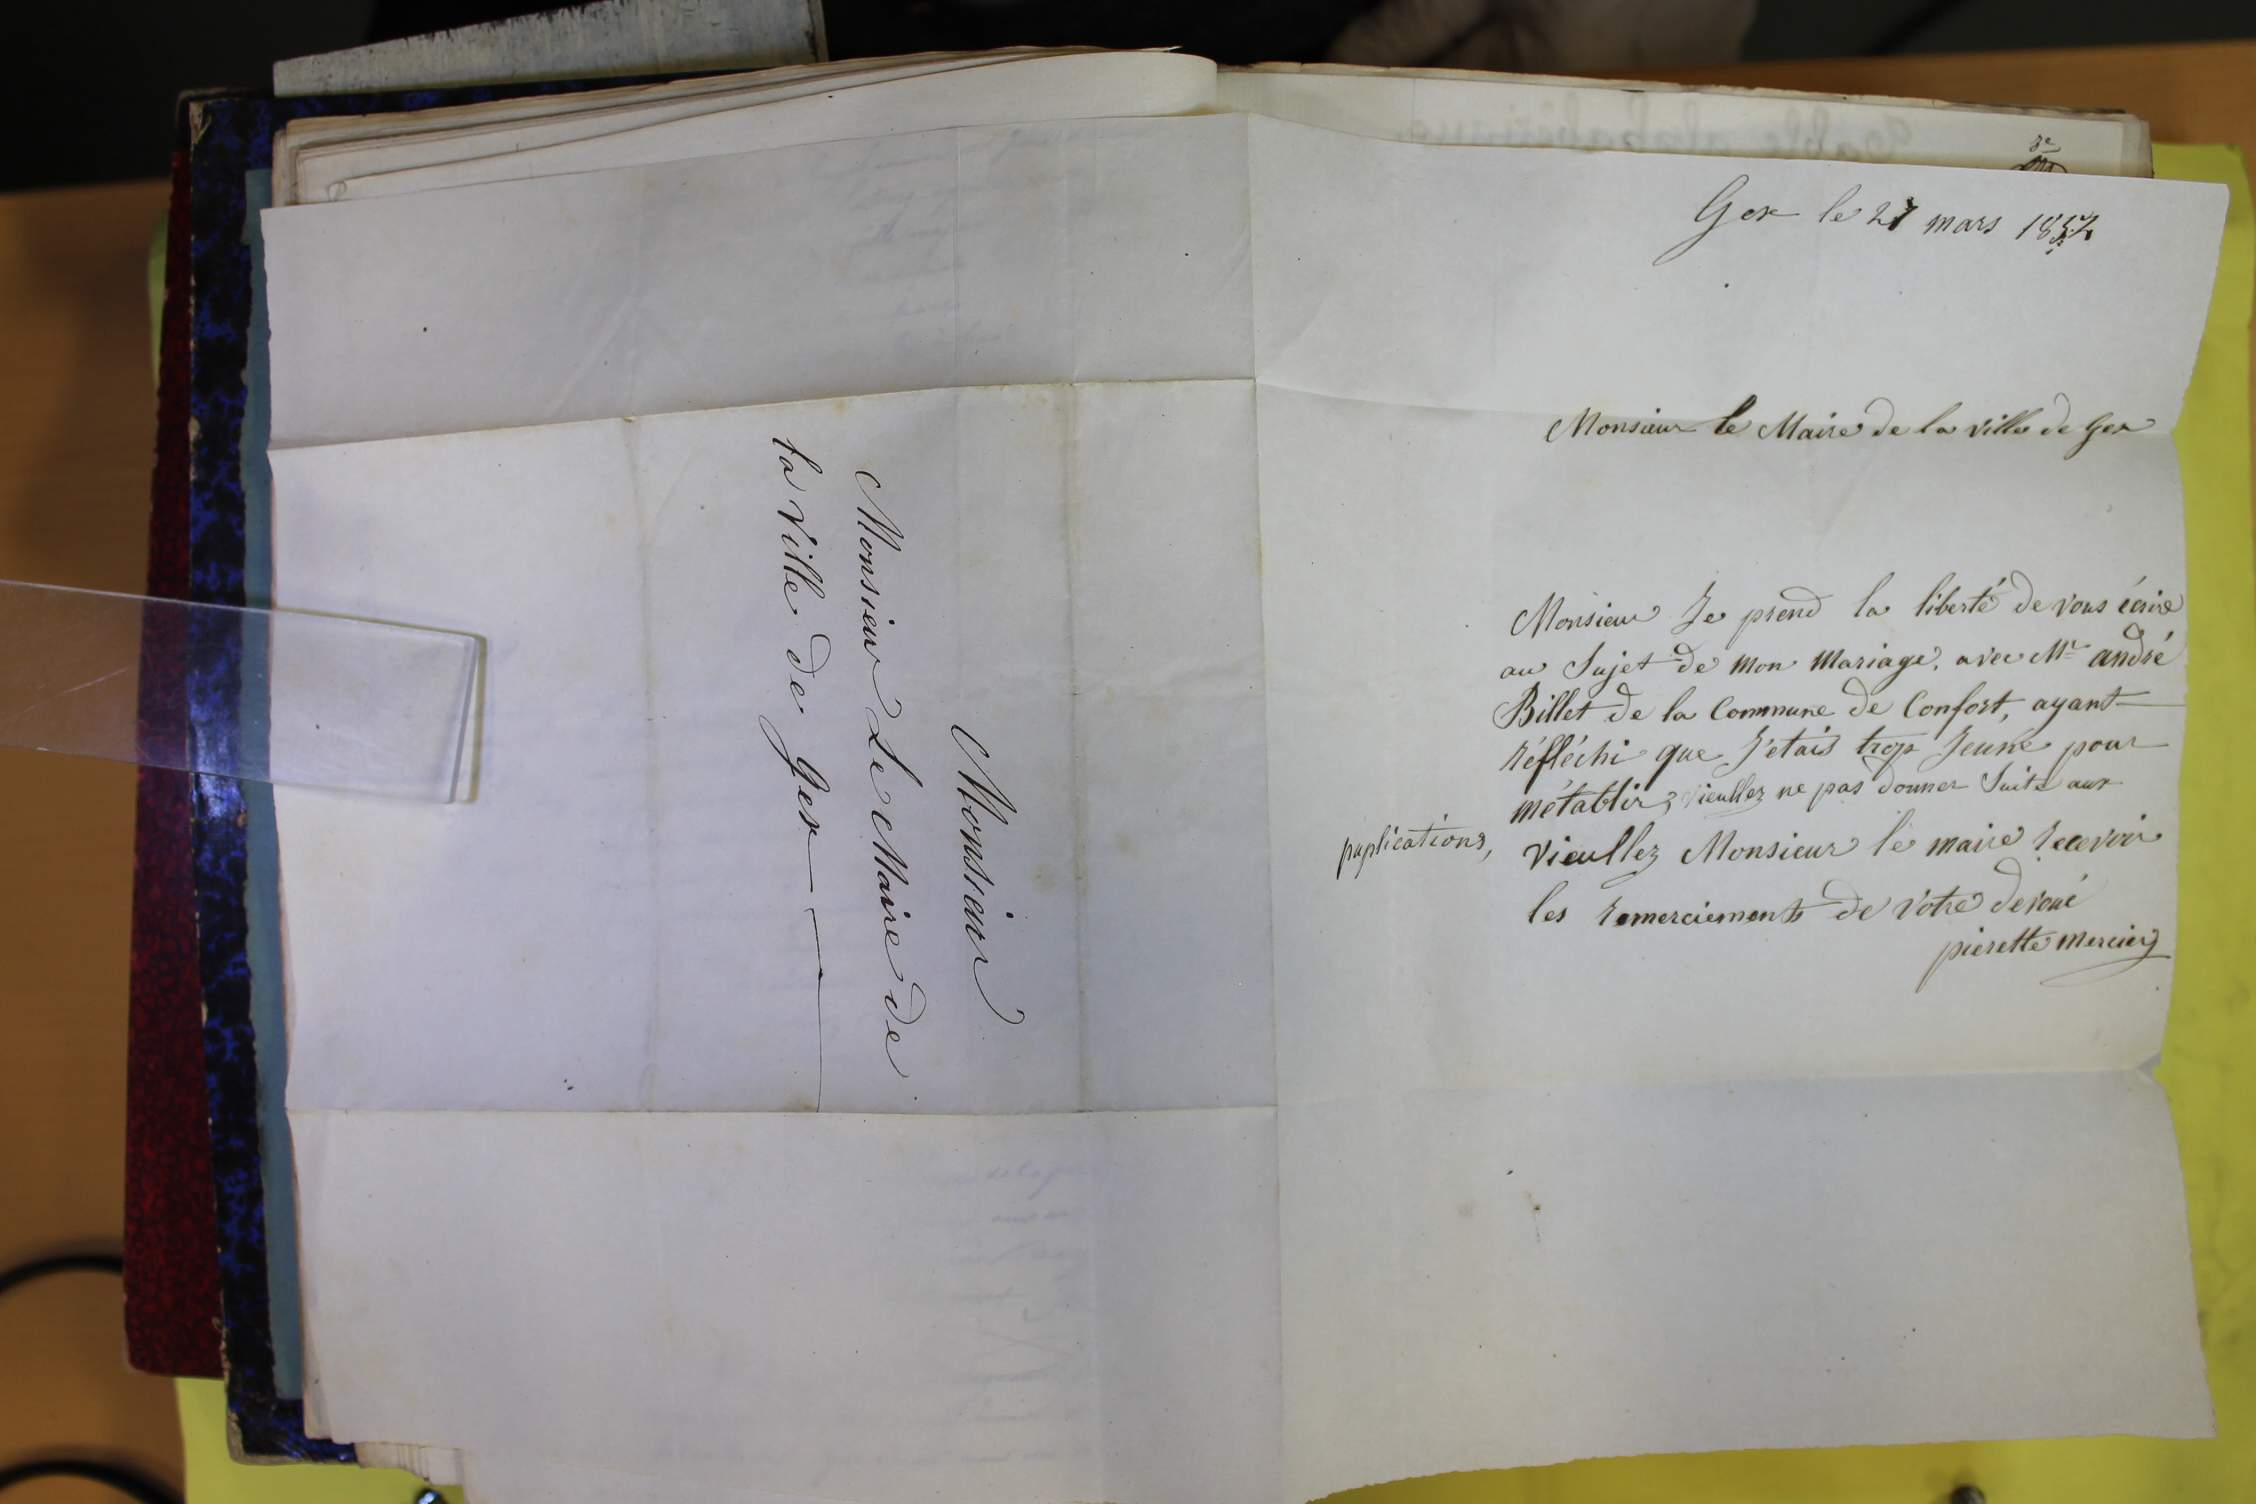 Monsieur
Monsieur Le Maire de
la Ville de Gex
Gex le 27 mars
Monsieur le Maire de la ville de Gex
Monsieur Je prend la liberté de vous écrire
au Sujet de mon Mariage, avec Mr andré
Billet de la Commune de Confort, ayant
réfléchi que J'etais trop Jeune pour
métablir, vieullez ne pas donner Suite aux
puplications,
vieullez Monsieur le maire recevoir
les remerciements de votre devoué
pierette mercier